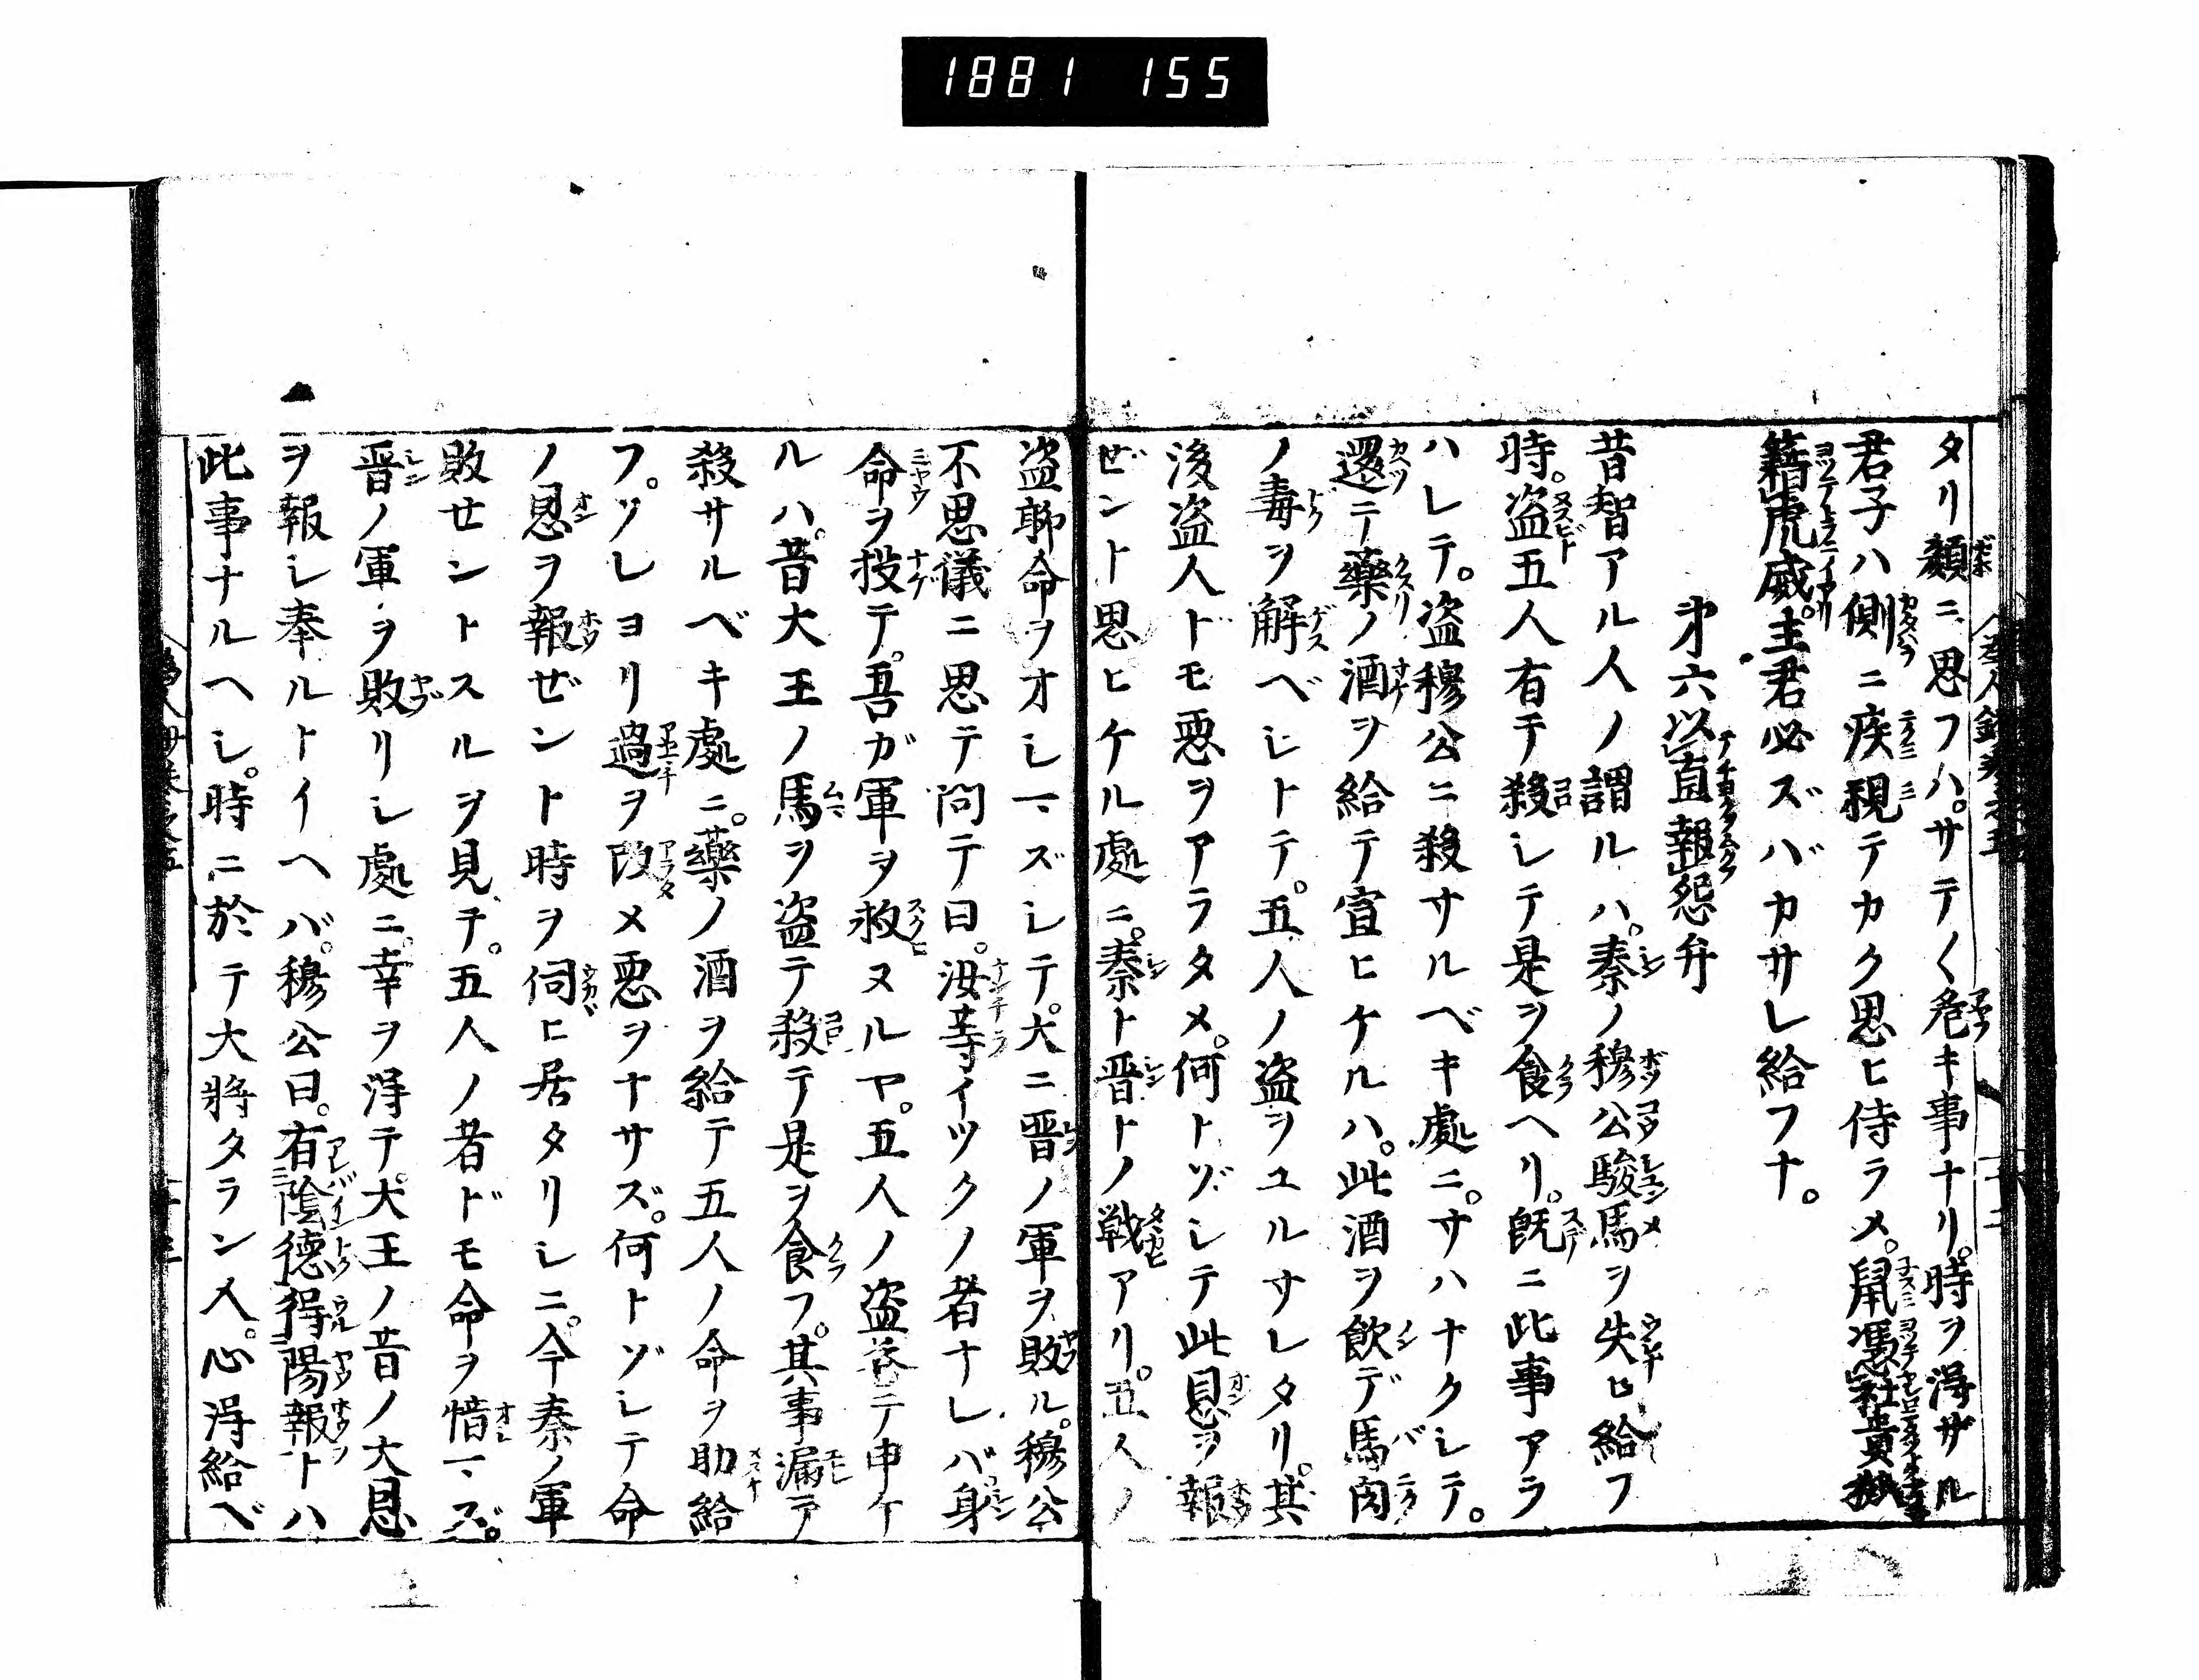 1881 155
タリ顔ニ思フハ。サテ〳〵危キ事ナリ。時ヲ得ザル
君子ハ側ニ疾視テカク思ヒ侍ラメ。鼠憑社貴狐
藉虎威。主君必ズバカサレ給フナ。
第六以直報怨弁
昔智アル人ノ謂ルハ。秦ノ穆公駿馬ヲ失ヒ給フ
時。盗五人有テ殺シテ是ヲ食ヘリ。既ニ此事アラ
ハレテ。盗穆公ニ殺サルベキ處ニ。サハナクシテ。
還テ藥ノ酒ヲ給テ宣ヒケルハ。此酒ヲ飲デ馬肉
ノ毒ヲ解ベシトテ。五人ノ盗ヲユルサレタリ。其
後盗人ドモ悪ヲアラタメ。何トゾシテ此恩ヲ報
ゼント思ヒケル處ニ。秦ト晋トノ戦アリ。五人ノ
盗聊命ヲオシマズシテ。大ニ晋ノ軍ヲ敗ル。穆公
不思儀ニ思テ問テ曰。汝等イヅクノ者ナレバ身
命ヲ投テ。吾ガ軍ヲ救ヌルヤ。五人ノ盗答テ申ケ
ルハ。昔大王ノ馬ヲ盗テ殺テ是ヲ食フ。其事漏テ
殺サルベキ處ニ。藥ノ酒ヲ給テ五人ノ命ヲ助給
フ。ソレヨリ過ヲ改メ悪ヲナサズ。何トゾシテ命
ノ恩ヲ報ゼント時ヲ伺ヒ居タリシニ。今秦ノ軍
敗セントスルヲ見テ。五人ノ者ドモ命ヲ惜マズ。
晋ノ軍ヲ敗リシ處ニ。幸ヲ得テ。大王ノ昔ノ大恩
ヲ報シ奉ルトイヘバ。穆公曰。有陰德得陽報トハ
此事ナルヘシ。時ニ於テ大將タラン人。心得給ベ